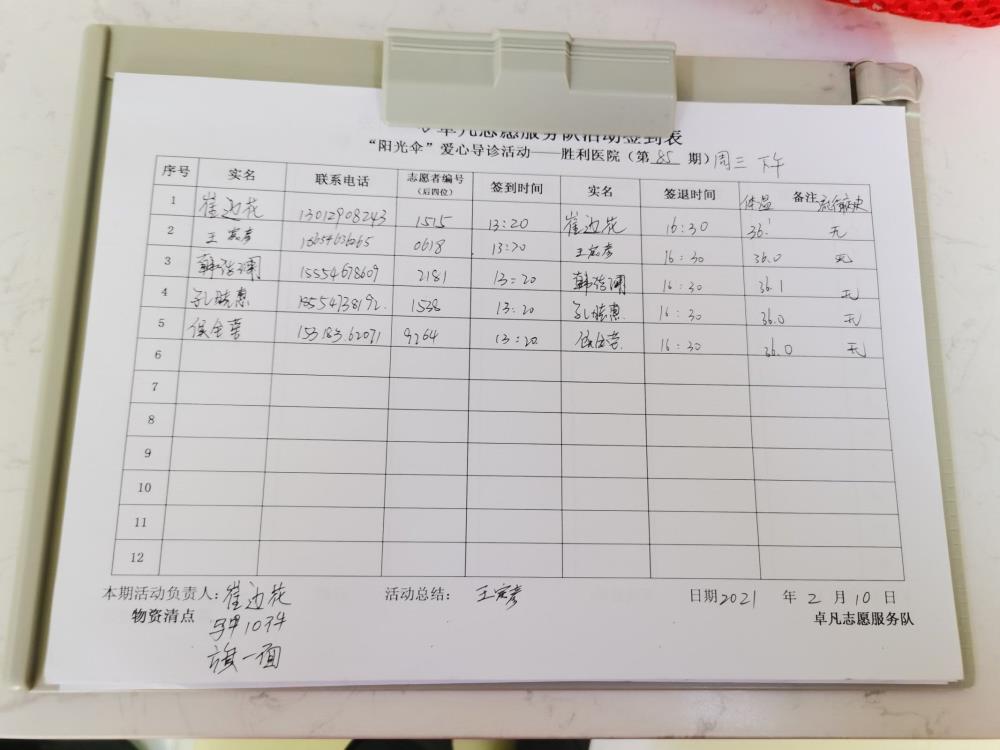 卓凡志愿服务队活动签到表
“阳光伞”爱心导诊活动——胜利医院（第 85 期）周三 下午
序号 实名 联系电话 志愿者编号（后四位） 签到时间 实名 签退时间 体温 备注 流行病史
1 崔边花 13012908243 1515 13:20 崔边花 16:30 36.1 无
2 王 0618 13:20 王 16:30 36.0 无
3 韩 15554678609 2181 13:20 韩 16:30 36.1 无
4 孔 15554738192. 1538 13:20 孔 16:30 36.0 无
5 侯金 15318362071 9264 13:20 侯金 16:30 36.0 无
6
7
8
9
10
11
12
本期活动负责人：崔边花 活动总结： 王 日期2021 年 2 月 10 日
物资清点 马甲10件 卓凡志愿服务队
旗一面